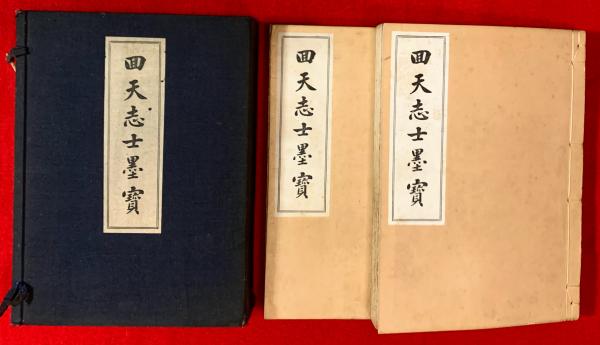 回天志士墨寶
回天志士墨寶
回天志士墨寶